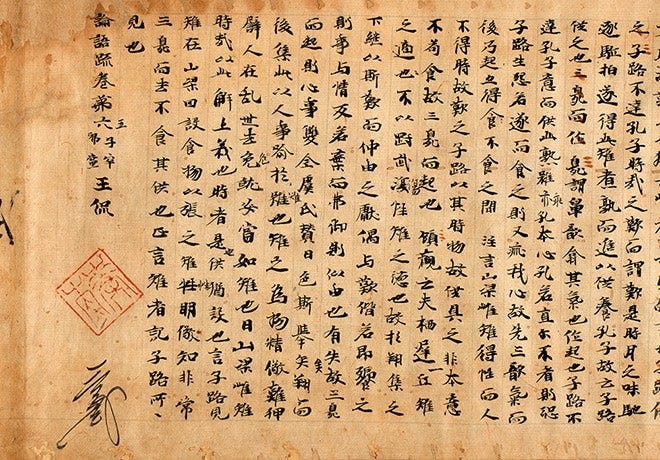 之子路不達孔子時哉之歎而謂歎是時月之味馳
逐驅拍遂得此雉者熟而進以供養孔子故云子路
供之也三臭而作臭謂鼻歆翕其氣也作起也子路不
達孔子意而供此熟雉乖孔本心孔若直尓不者則恐
子路生怨若遂而食之則又乖我心故先三歎氣而
後乃起亦得食不食之間 注言山梁雌雉得性而人
不得時故歎之子路以其時物故供具之非本意
不苟食故三臭而起也 顧歡云夫栖遲一丘雉
之適也不以剛武傷性雉之德也故於翔集之
下繼以斯歎而仲由之獻偶与歎偕若即饗之
則事与情反若棄而弗御則似由也有失故三臭
而起則心事雙全虞氏贊曰色斯舉矣翔而
後集此以人事喻於雉也雉之為物精儆難狎
譬人在乱世去危就安當如雉也曰山梁雌雉
時哉以此解上義也時者是也供猶設也言子路見
雉在山梁因設食物以張之雉性明儆知非常
三臭而去不食其供也正言雌者記子路所
見也
論語疏卷第六 王侃